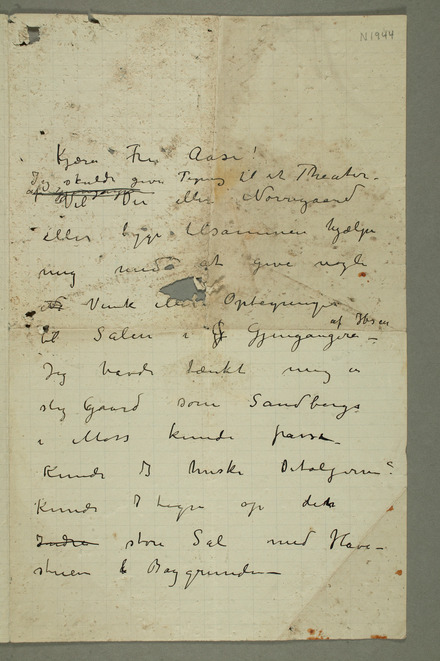 N1944
Kjære Fru Aase!
Jeg skulde give Tegning til et Theater-
Vil De eller Nørregaard
eller begge tilsammen hjælpe
mig med at give nogle
Vink eller Optegninger
til Salen i Gjengangere af Ibsen –
Jeg havde tænkt mig en
slig Gaard som Sandbergs
i Moss kunde passe
Kunde I huske Detaljerne?
Kunde I tegne op den
Indre store Sal med Have-
stuen i Baggrunden –